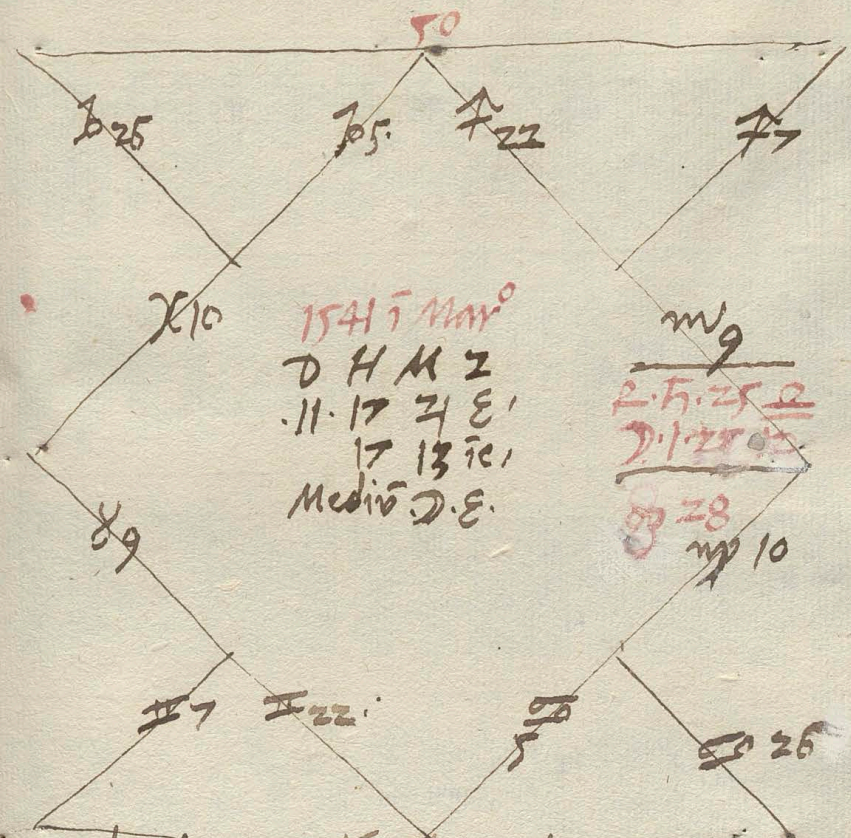 50
♑ 26 ♑ 5. ♐ 22 ♐ 7
♓ 10
1541 ī Marº
D H M Z
.11. 17 21 E.
17 13 īc,
Mediū .D.E.
♏ 9
R. ♄. 25 ♎
☽. 1. 25
28
♉ 9
♍ 10
♊ 7 ♊ 22.
♋ 5
♋ 26